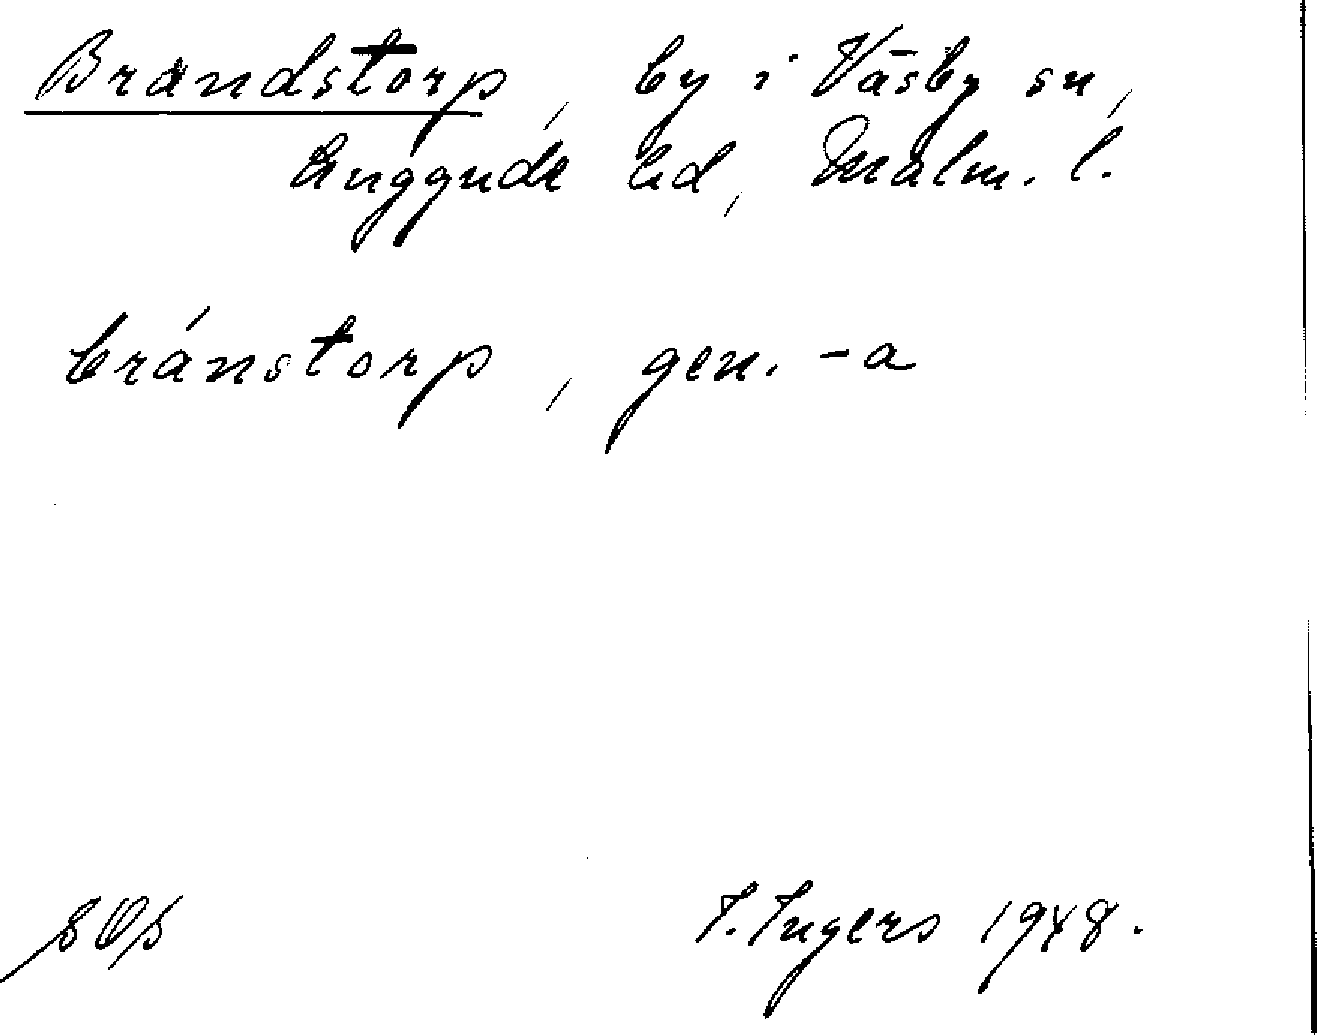 Brändstorp, by i Väsby sn,
Luggude hd, Malm. l.
bránstorp, gen. -a
I. Ingers 1948.